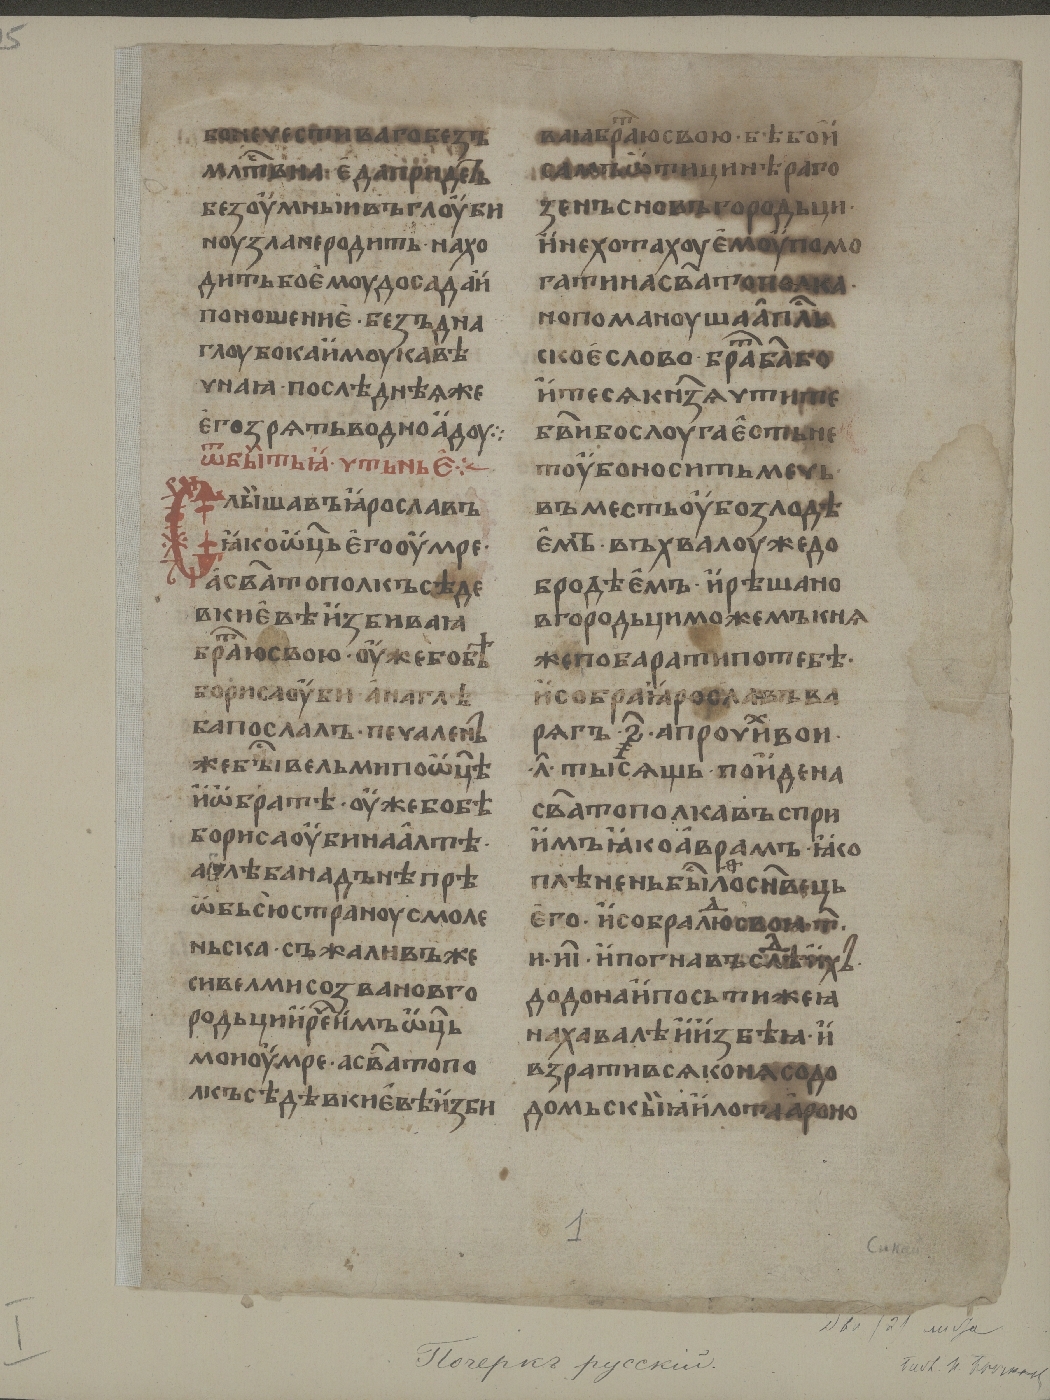 15
бонечестиваго безъ
безоумныи въ глоуби
ноу зла не родить · нахо
дить бо ємоу досада й
поношениє · безъ дна
глоубока ймоука в ѣ
чнаꙗ · послѣднѣꙗ же
єго зрять во дно адоу ⁘
ѿ бытьꙗ · чтьньє ⁘
Слышавъ ꙗрославъ
ꙗко ѡц҃ь єго оумре ·
а ст҃ополкъ сѣде
в києвѣ йзбиваꙗ
бра҃ю свою · оуже бо бѣ
бориса оуби а на глѣ
ба послалъ · печаленъ
же бы вельми по ѡц҃ѣ
й ѡ братѣ · оуже бо бѣ
бориса оуби на алтѣ ·
а глѣба на дънѣпрѣ
ѡбь сю страноу смоле
ньска · съжаливъ же
си велми созва новго
родьци й реч҃ ймъ ѡц҃ь
мои оумре · а ст҃опо
лкъ сѣдѣ в києвѣ йзби
ваꙗ братю свою · бѣ бо й
зенъ с новъгородьци ·
й не хотѧхоу ємоу помо
гати на свѧтополка ·
но помѧноуша ап҃ль
скоє слово · бра҃ ба҃ бо
йтеся кнз҃я чтите
бв҃и бо слоуга єсть не
тоу бо носить мечь
въ месть оубо злодѣ
ємъ · въ хвалоу же до
бродѣємъ · й рѣша но
вгородьци можемъ кня
же побарати по тебѣ ·
й собра ꙗрославъ ва
рягъ · а прочйⷯ вои ·
·л҃· тысящь · пойде на
свѧтополка въспри
ймъ ꙗко аврамъ · ꙗко
плѣненъ бы ло сн҃вець
єго · й собра лю своꙗ · т҃ ·
и · и҃ι · й погнавъ слѣ йхъ ·
до дона й постиже ꙗ
на хавалѣ й йзбѣꙗ · й
взратився коня содо
домьскыꙗ й лота а роно
1
I
Почеркъ русскій.